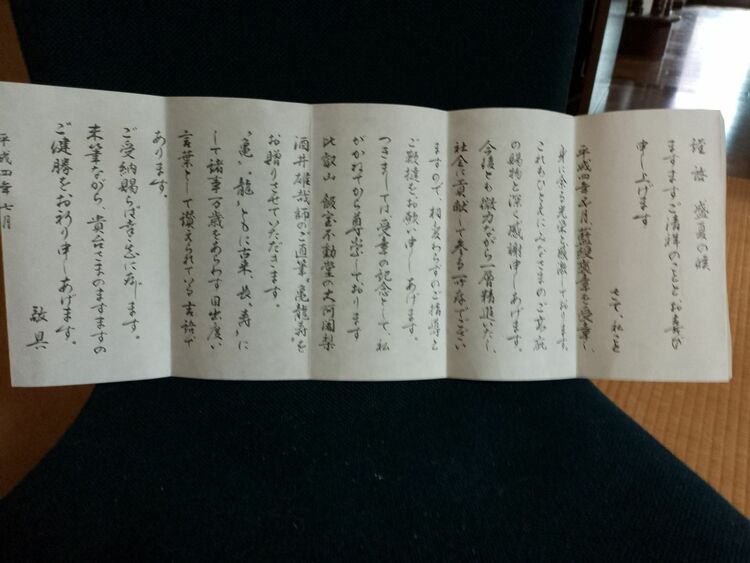 謹啓 盛夏の候
ますますご清祥のこととお喜び
申し上げます
さて、私こと
平成四年 月、藍綬褒章を受章し、
身に余る光栄と感激しております。
これもひとえにみなさまのご高庇
の賜物と深く感謝申しあげます。
今後とも微力ながら一層精進いたし、
社会に貢献して参る所存でござい
ますので、相変わらずのご指導と
ご鞭撻をお願い申しあげます。
つきましては受章の記念として、私
がかねてから尊崇しております
比叡山 飯室不動堂の大阿闍梨
酒井雄哉師のご直筆〝亀龍寿〟を
お贈りさせていただきます。
〝亀〟〝龍〟ともに古来、長〝寿〟に
して諸事万歳をあらわす目出度い
言葉として讃えられている言語で
あります。
ご受納賜らば幸甚に存じます。
末筆ながら、貴台さまのますますの
ご健勝をお祈り申しあげます。
敬具
平成四年七月